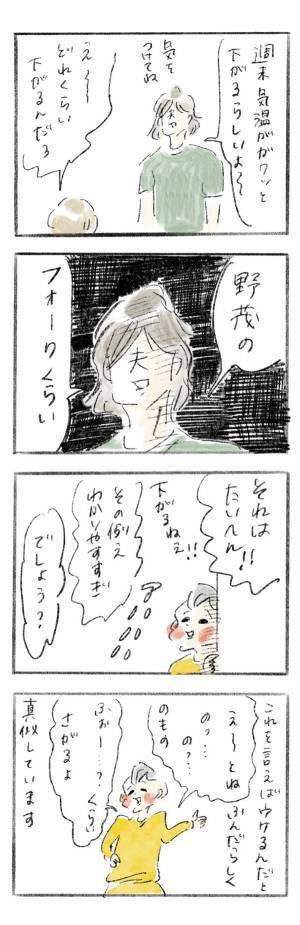 週末気温がガクッと
下がるらしいよ〜
気を
つけてね
え〜〜
どれくらい
下がるんだろ
夫
野茂の
フォークくらい
夫
それは
たいへん!!
下がるねえ!!
その例え
わかりやすすぎ
でしょう?
これを言えばウケるんだと
ふんだらしく
え〜とね
のっ…のっ…
のもの
ふぉー…っくらい
さがるよ
真似しています